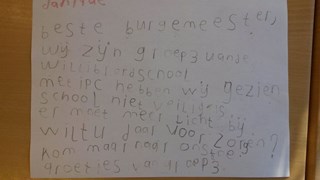 beste burgemeester,
wij zijn groep 3 van de
willibrordschool
met ipc hebben wij gezien
school niet veilig is
er moet meer licht bij
wilt u daar voor zorgen?
kom maar naar onstre
groetjes van groep 3